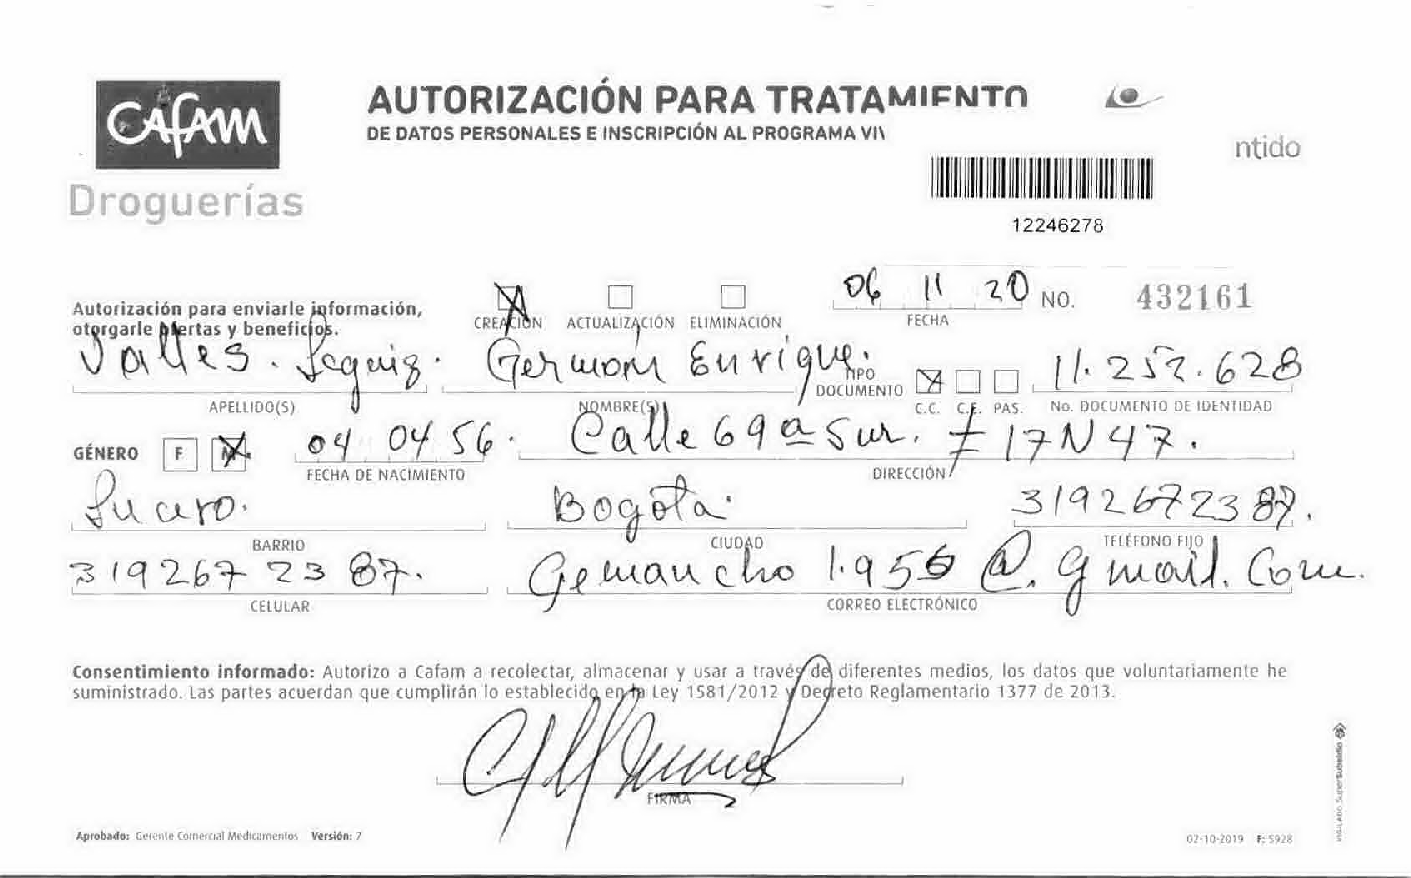 CAFAM
Droguerías
AUTORIZACIÓN PARA TRATAMIENTO
DE DATOS PERSONALES E INSCRIPCIÓN AL PROGRAMA
ntido
12246278
Autorización para enviarle información,
otorgarle ofertas y beneficios.
CREACIÓN ACTUALIZACIÓN ELIMINACIÓN
06 11 20
FECHA
NO. 432161
Valles.
APELLIDO(S)
German Enrique.
NOMBRE(S)
TIPO
DOCUMENTO
C.C. C.E. PAS.
11.252.628
No. DOCUMENTO DE IDENTIDAD
GÉNERO F M
04 04 56.
FECHA DE NACIMIENTO
Calle 69 a Sur. # 17N 47.
DIRECCIÓN
Lucero.
BARRIO
Bogotá.
CIUDAD
3192672387.
TELÉFONO FIJO
319267 23 87.
CELULAR
Gemancho 1.956 @. gmail. Com.
CORREO ELECTRÓNICO
Consentimiento informado: Autorizo a Cafam a recolectar, almacenar y usar a través de diferentes medios, los datos que voluntariamente he
suministrado. Las partes acuerdan que cumplirán lo establecido en la Ley 1581/2012 y Decreto Reglamentario 1377 de 2013.
FIRMA
Aprobado: Gerente Comercial Medicamentos Versión: 7
02-10-2019 F: 5928
VIGILADO SuperSubsidio